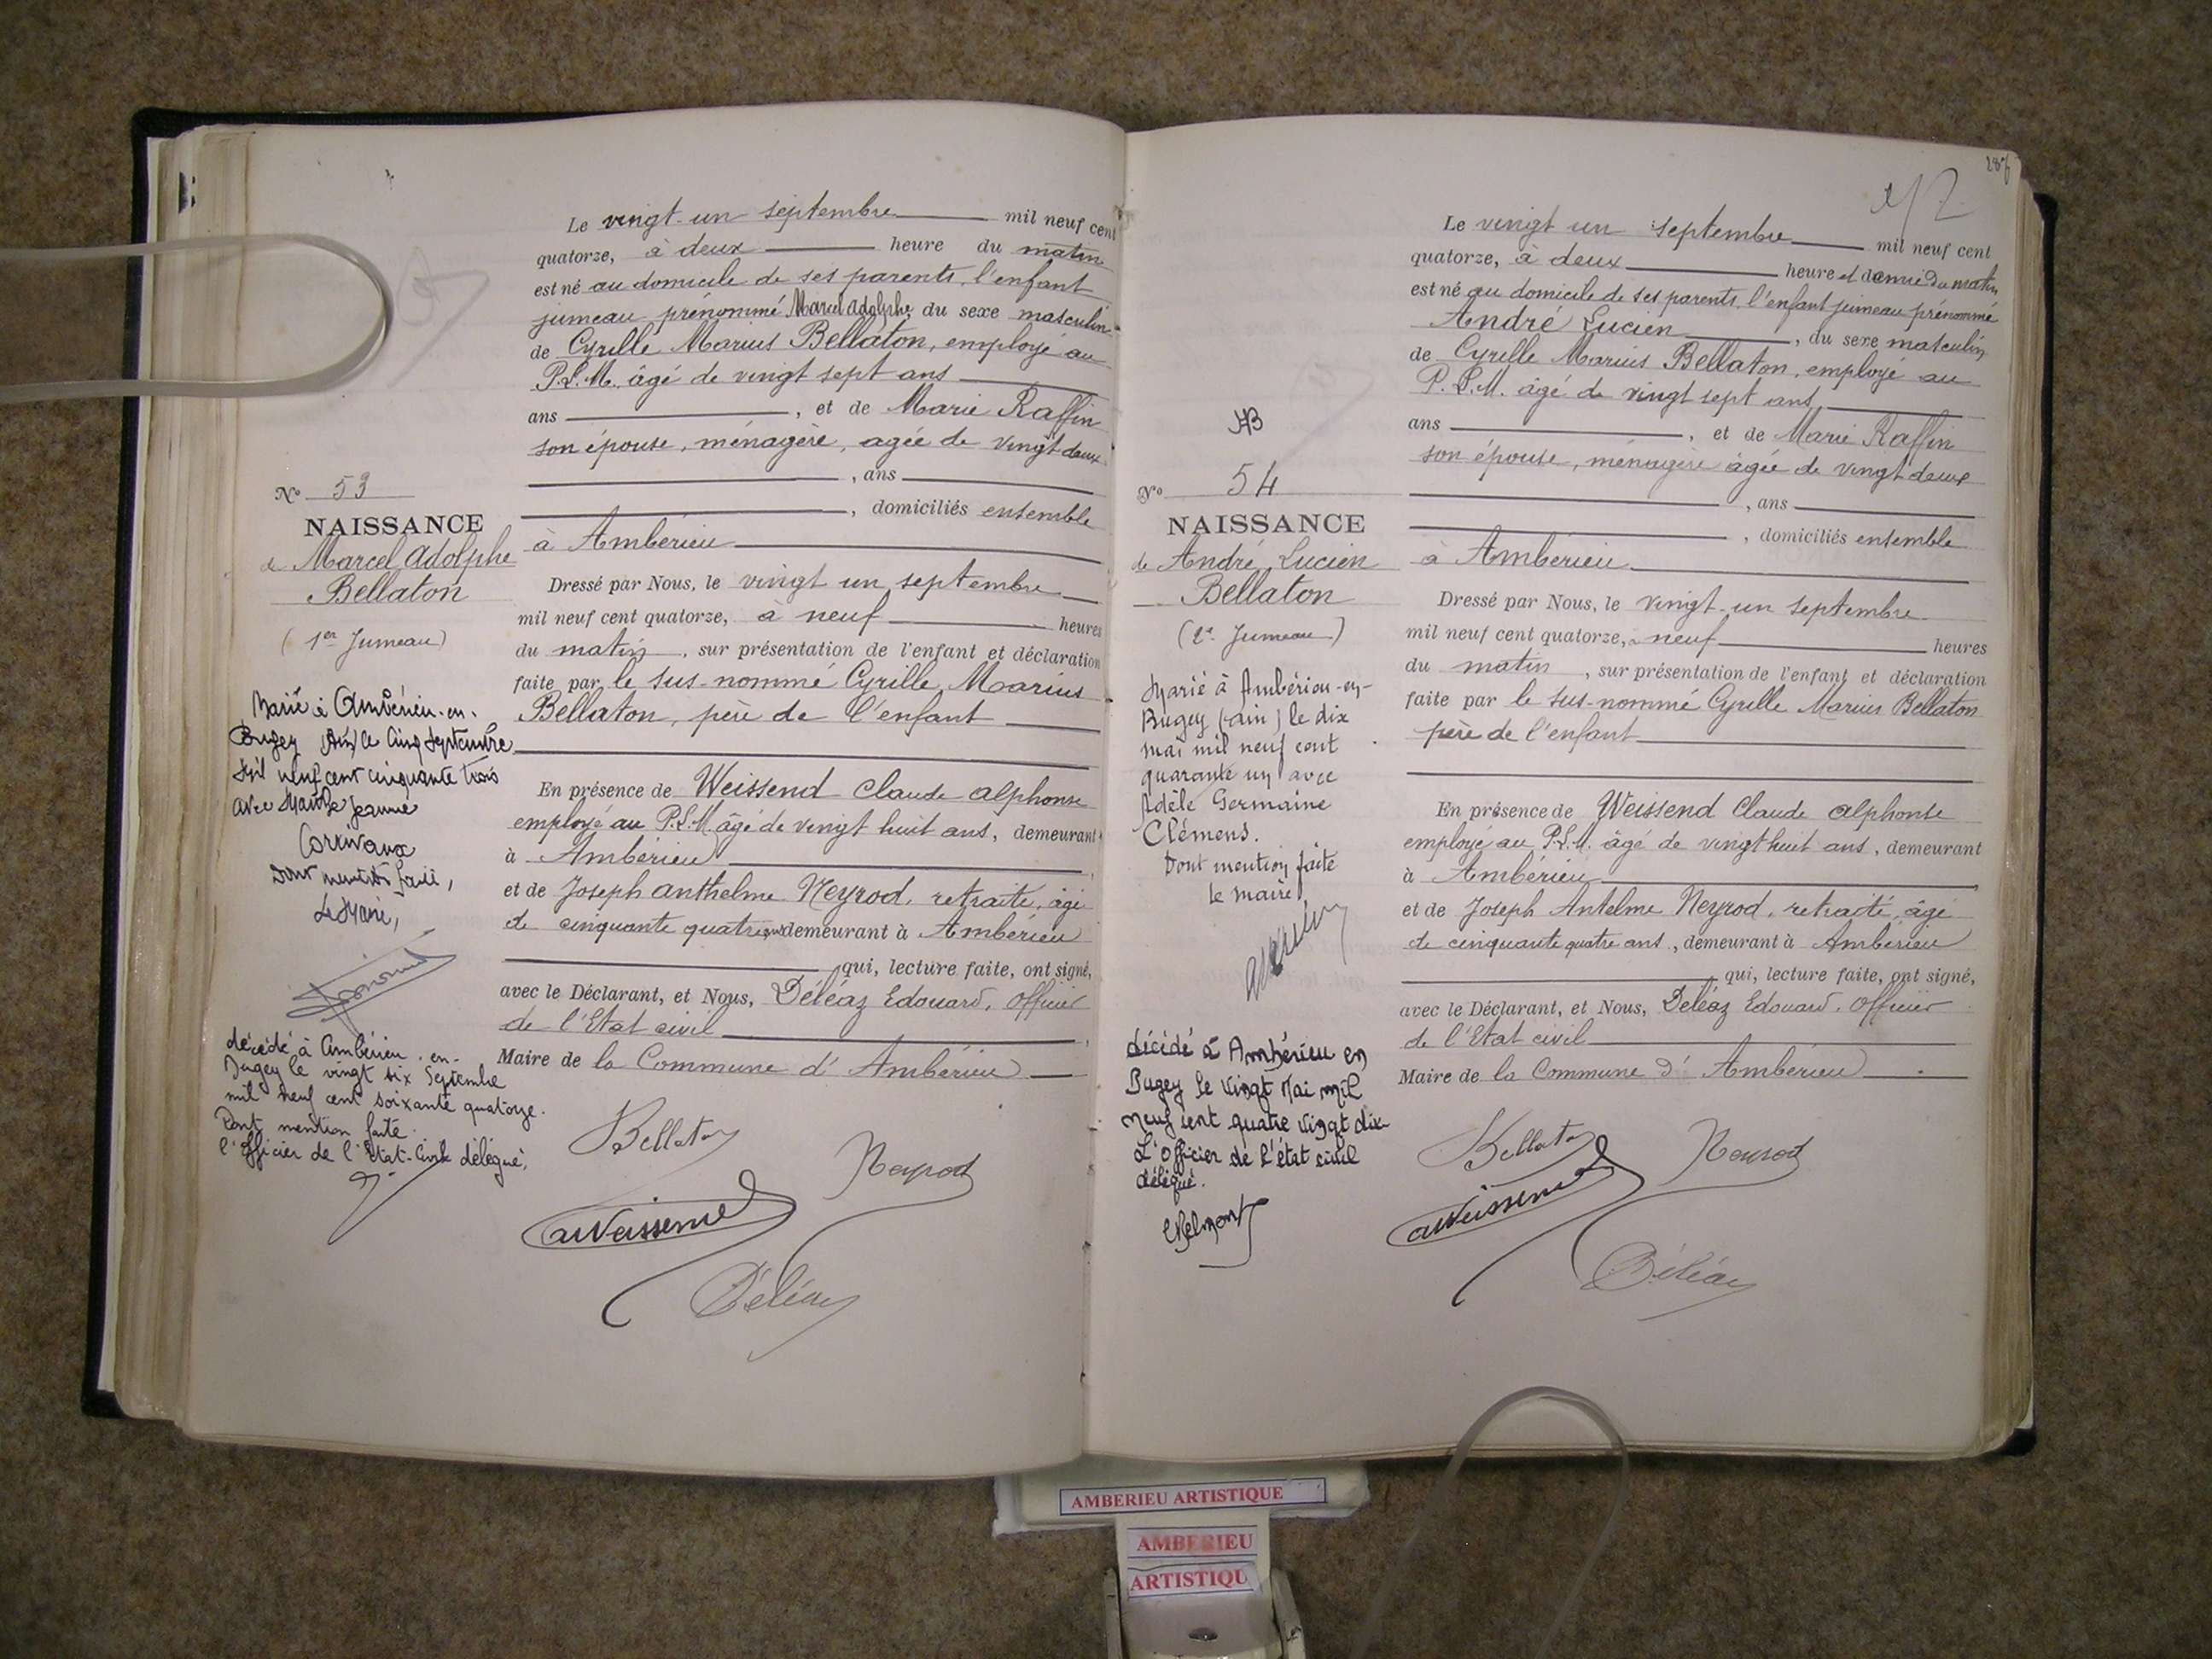 Le vingt-un septembre mil neuf cent
quatorze, à deux heure du matin
est né au domicile de ses parents, l'enfant
jumeau prénommé Marcel Adolphe, du sexe masculin
de Cyrille Marius Bellaton, employé au
P.L.M. âgé de vingt sept ans
ans , et de Marie Raffin
son épouse, ménagère, agée de vingt deux
, ans
, domiciliés ensemble
à Ambérieu
Dressé par Nous, le vingt un septembre
mil neuf cent quatorze, à neuf heures
du matin , sur présentation de l'enfant et déclaration
faite par le sus-nommé Cyrille Marius
Bellaton, père de l'enfant
En présence de Weissend Claude alphonse
employé au P.L.M. âgé de vingt huit ans, demeurant
à Ambérieu
et de Joseph anthelme Neyrod, retraité, âgé
de cinquante quatre ans demeurant à Ambérieu
qui, lecture faite, ont signé,
avec le Déclarant, et Nous, Déléaz Edouard, Officier
de l'Etat civil
Maire de la Commune d'Ambérieu
Bellaton
Neyrod
aWeissend
Déléaz
No 53
NAISSANCE
de Marcel Adolphe
Bellaton
(1er Jumeau)
Marié à Ambérieu-en-
Bugey (Ain) le cinq Septembre
mil neuf cent cinquante trois
avec Marthe Jeanne
Corrivaux
Dont mention faite,
Le Maire,
décédé à Ambérieu-en-
Bugey le vingt six Septembre
mil neuf cent soixante quatorze.
Dont mention faite.
l'Officier de l'Etat-Civil délégué,
286
Le vingt un septembre mil neuf cent
quatorze, à deux heure et demie du matin
est né au domicile de ses parents, l'enfant jumeau prénommé
André Lucien , du sexe masculin
de Cyrille Marius Bellaton, employé au
P.L.M. âgé de vingt sept ans
ans , et de Marie Raffin
son épouse, ménagère âgée de vingt deux
, ans
, domiciliés ensemble
à Ambérieu
Dressé par Nous, le vingt-un septembre
mil neuf cent quatorze, à neuf heures
du matin , sur présentation de l'enfant et déclaration
faite par le sus-nommé Cyrille Marius Bellaton
père de l'enfant
En présence de Weissend Claude alphonse
employé au P.L.M. âgé de vingt huit ans, demeurant
à Ambérieu
et de Joseph Antelme Neyrod, retraité, âgé
de cinquante quatre ans, demeurant à Ambérieu
qui, lecture faite, ont signé,
avec le Déclarant, et Nous, Deléaz Edouard, Officier
de l'Etat civil
Maire de la Commune d'Ambérieu
Bellaton
Neyrod
aWeissend
Déléaz
No 54
NAISSANCE
de André Lucien
Bellaton
(2e Jumeau)
Marié à Ambérieu-en-
Bugey (Ain) le dix
mai mil neuf cent
quarante un avec
Adèle Germaine
Clémens.
Dont mention faite
le maire
décédé à Ambérieu en
Bugey le vingt Mai mil
neuf cent quatre vingt dix
L'officier de l'état civil
délégué.
AMBERIEU ARTISTIQUE
AMBERIEU
ARTISTIQU